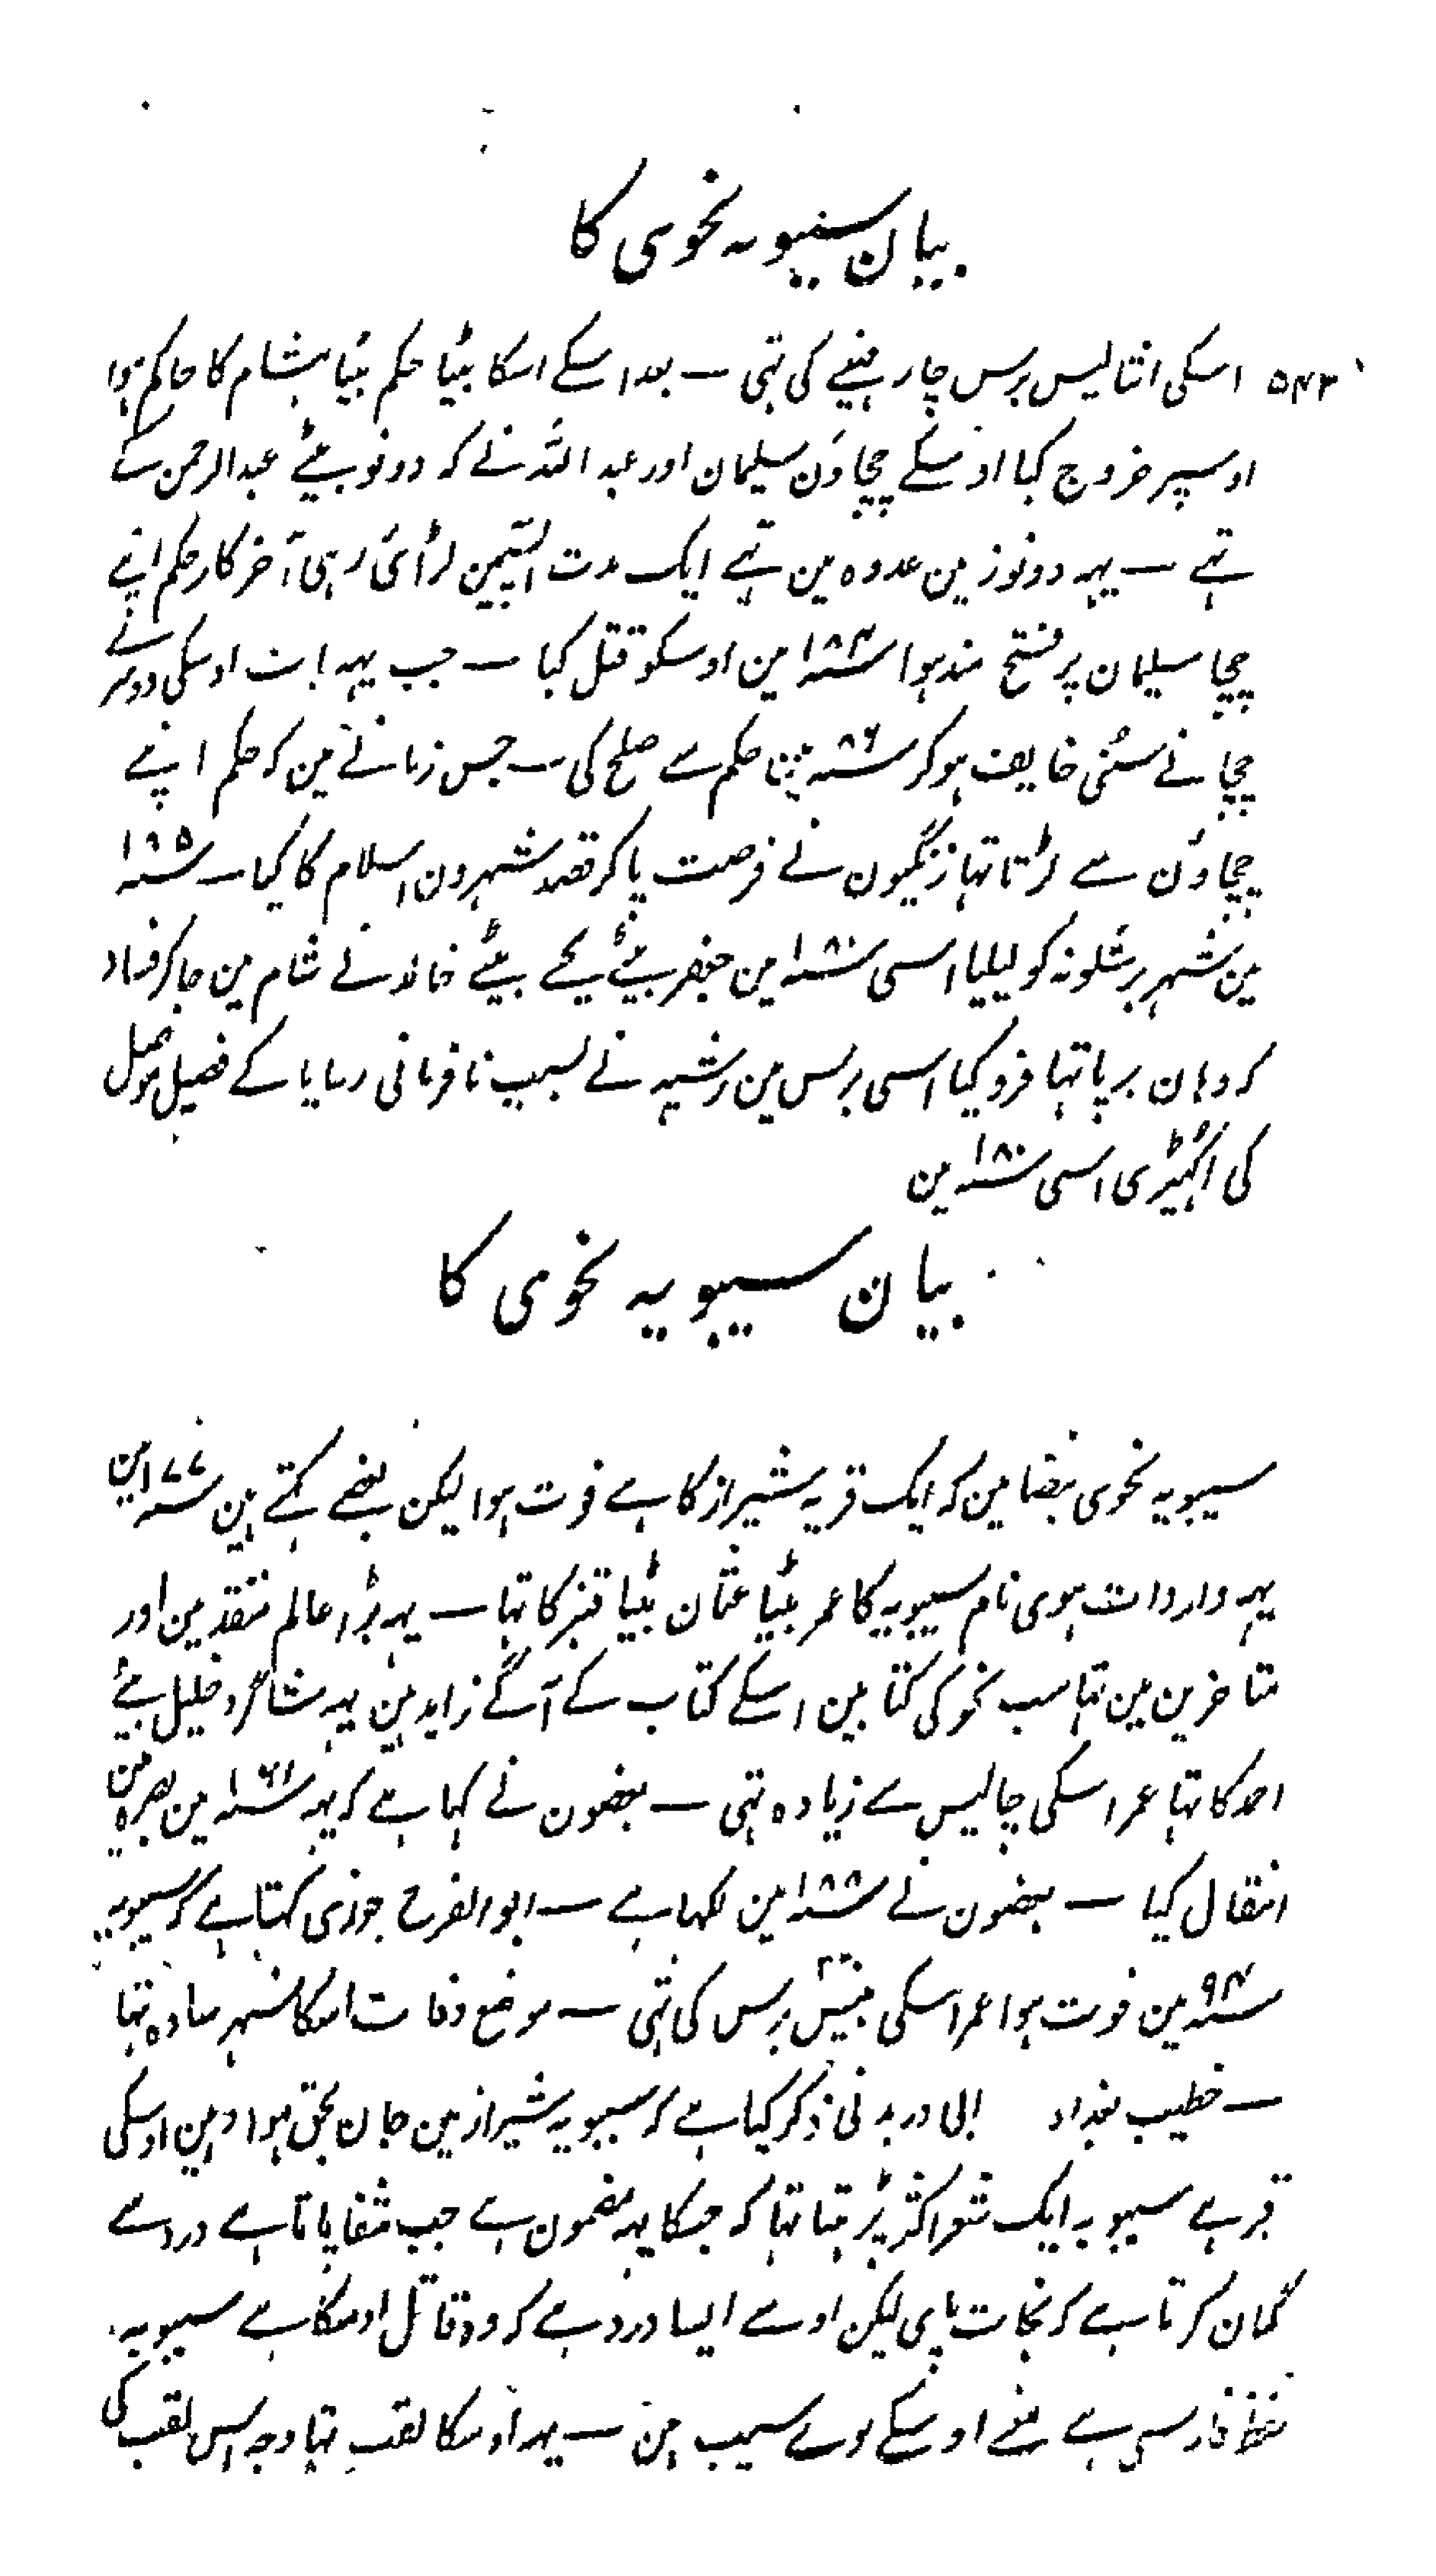 بیان سیبویہ نحوی کا
۵۴۳ اسکی انتالیس برس چار مہینے کی تہی — بعد اسکے اسکا بیٹا حکم بیٹا ہشام کا حاکم ہوا
اوسپر خروج کیا اوسکے چچاؤن سلیمان اور عبد اللہ نے کہ دونو بیٹے عبدالرحمن کے
تہے — یہہ دونو زمین عدوہ مین تہے ایک مدت لڑائی رہی آخر کار حکم اپنے
چچا سلیمان پر فتح مند ہوا سنہ ۱۸۴ مین اوسکو قتل کیا — جب یہہ بات اوسکی دوسرے
چچا نے سُنی خایف ہوکر سنہ ۸۶ مین حکم سے صلح کی — جس زمانے مین کہ حکم اپنے
چچاؤن سے لڑتا تہا فرنگیون نے فرصت پا کر قصد شہرون اسلام کا کیا — سنہ ۱۸۵
مین شہر برشلونہ کو لیلیا اسی سنہ ۱۸۰ مین جعفر بیٹے یحے بیٹے خالد نے شام مین جا کر فساد
کہ وہان برپا تہا فرو کیا اسی برس مین رشید نے بسبب نافرمانی رعایا کے فصیل موصل
کی اکہیڑی اسی سنہ ۱۸۰ مین
بیان سیبویہ نحوی کا
سیبویہ نحوی بیضا مین کہ ایک قریہ شیراز کا ہے فوت ہوا لیکن بعضے کہتے ہین سنہ ۱۷۷ مین
یہہ واردات ہوی نام سیبویہ کا عمر بیٹا عثمان بیٹا قنبر کا تہا — یہہ بڑا عالم متقدمین اور
متاخرین مین تہا سب نحو کی کتابین اسکے کتاب کے آگے زاید ہین یہہ شاگرد خلیل بیٹے
احمد کا تہا عمر اسکی چالیس سے زیادہ تہی — بعضون نے کہا ہے کہ یہہ سنہ ۱۶۱ مین بصرہ مین
انتقال کیا — بعضون نے سنہ ۱۸۸ مین لکہا ہے — ابو الفرح جوزی کہتا ہے کہ سیبویہ
سنہ ۹۴ مین فوت ہوا عمر اسکی ۳۲ بتیس برس کی تہی — موضع وفات اسکا شہر سادہ تہا
— خطیب بغداد ابی درید نی ذکر کیا ہے کہ سیبویہ شیراز مین جان بحق ہوا وہین اوسکی
قبر ہے سیبویہ ایک شعر اکثر پڑہتا تہا کہ جسکا یہہ مضمون ہے جب شفا پاتا ہے درد سے
گمان کرتا ہے کہ نجات پای لیکن اوسے ایسا درد ہے کہ وہ قاتل اوسکا ہے سیبویہ
لفظ فارسی ہے معنے اوسکے بوے سیب ہین — یہہ اوسکا لقب تہا وجہ اس لقب کی